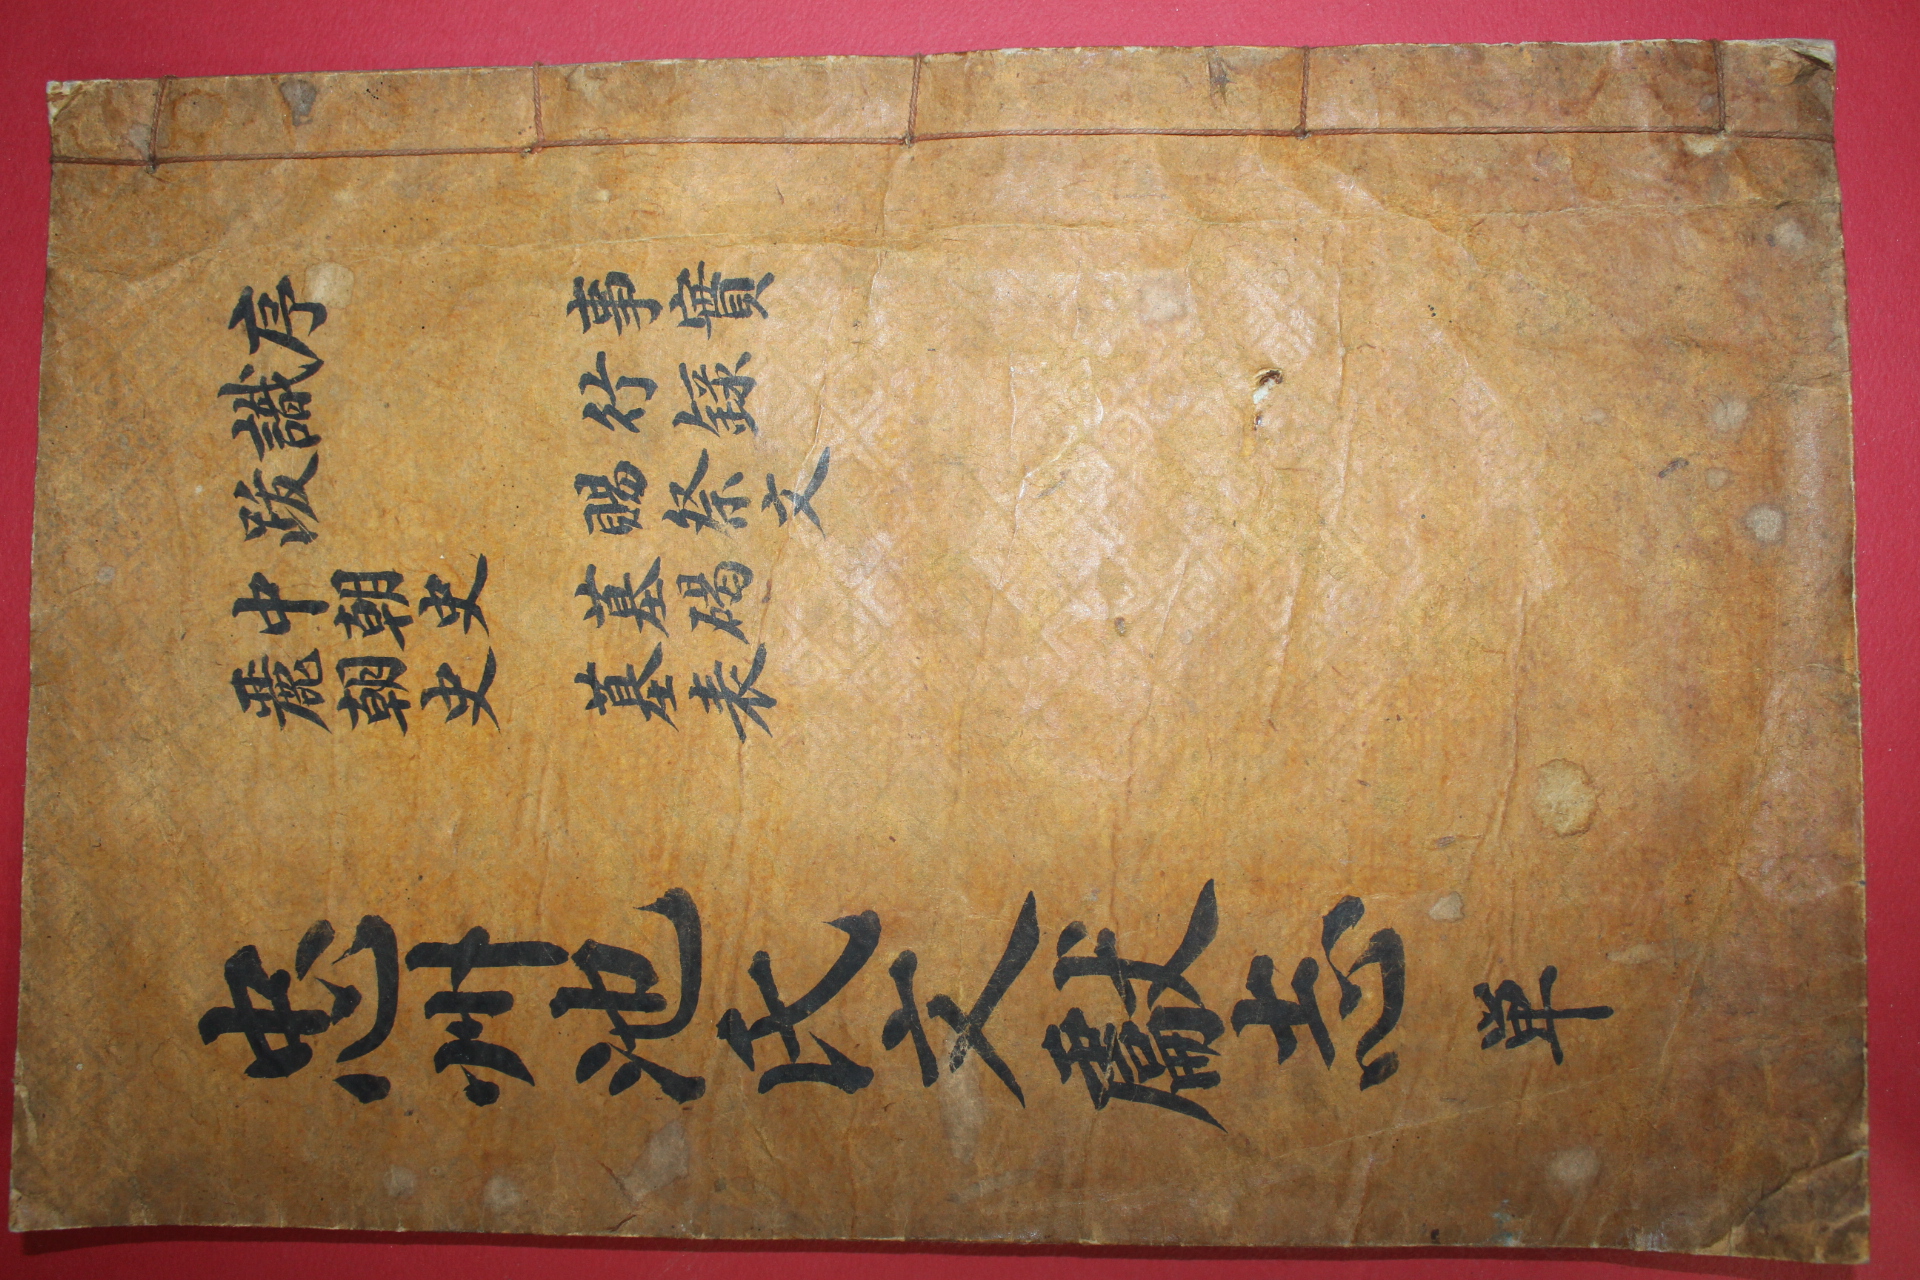 序
識
跋
中朝史
麗朝史
事實
行錄
賜祭文
墓碣
墓表
忠州池氏文獻志 單